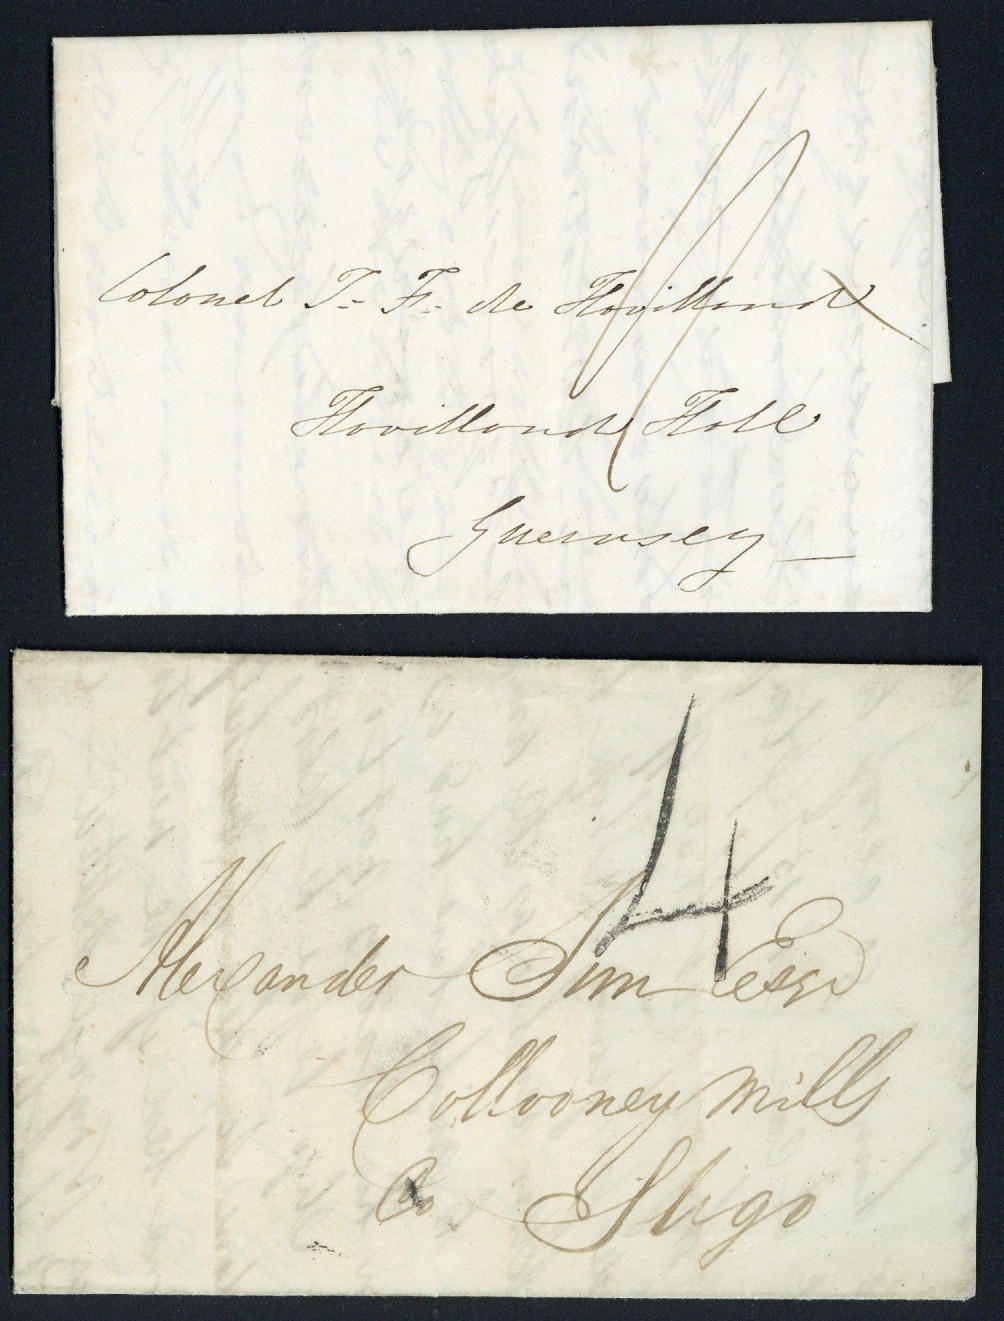 Colonel T. F. de Havilland
Havilland Hall
Guernsey
4
Alexander Sim Esqr
Collooney Mills
Co Sligo